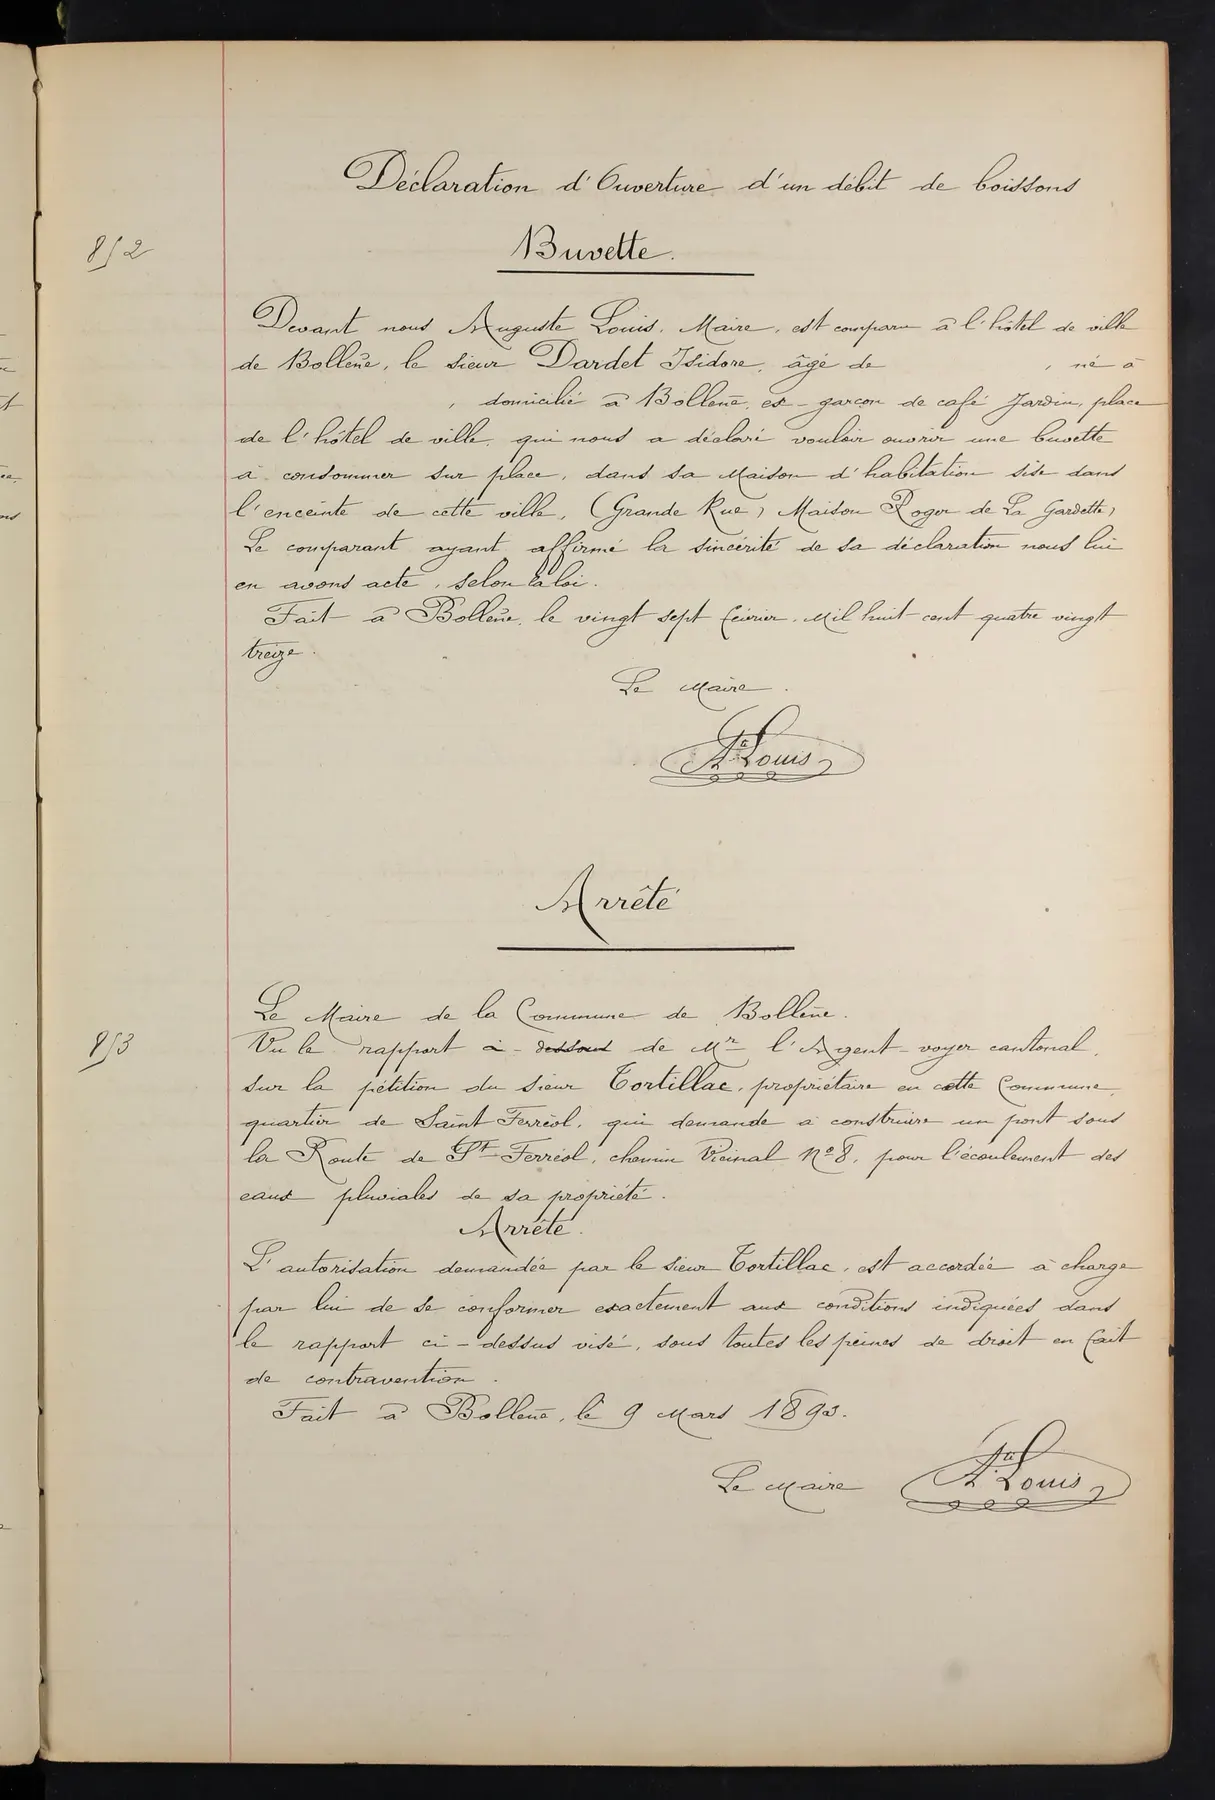 Déclaration d'Ouverture d'un débit de boissons
852
Buvette.
Devant nous Auguste Louis, Maire, est comparu à l'hôtel de ville
de Bollène, le sieur Dardet Isidore, âgé de , né à
, domicilié à Bollène, ex-garçon de café Jardin, place
de l'hôtel de ville, qui nous a déclaré vouloir ouvrir une buvette
à consommer sur place, dans sa Maison d'habitation sise dans
l'enceinte de cette ville, (Grande Rue) Maison Roger de La Gardette)
Le comparant ayant affirmé la sincérité de sa déclaration nous lui
en avons acte, selon la loi.
Fait à Bollène, le vingt sept février, mil huit cent quatre vingt
treize.
Le Maire.
A.te Louis
Arrêté
853
Le Maire de la Commune de Bollène.
Vu le rapport ci-dessous de Mr l'Agent-voyer cantonal,
sur la pétition du sieur Tortillac, propriétaire en cette Commune,
quartier de Saint Ferréol, qui demande à construire un pont sous
la Route de St Ferréol, chemin Vicinal No 8, pour l'écoulement des
eaux pluviales de sa propriété.
Arrête.
L'autorisation demandée par le sieur Tortillac, est accordée à charge
par lui de se conformer exactement aux conditions indiquées dans
le rapport ci-dessus visé, sous toutes les peines de droit en fait
de contravention.
Fait à Bollène, le 9 Mars 1893.
Le Maire A.te Louis